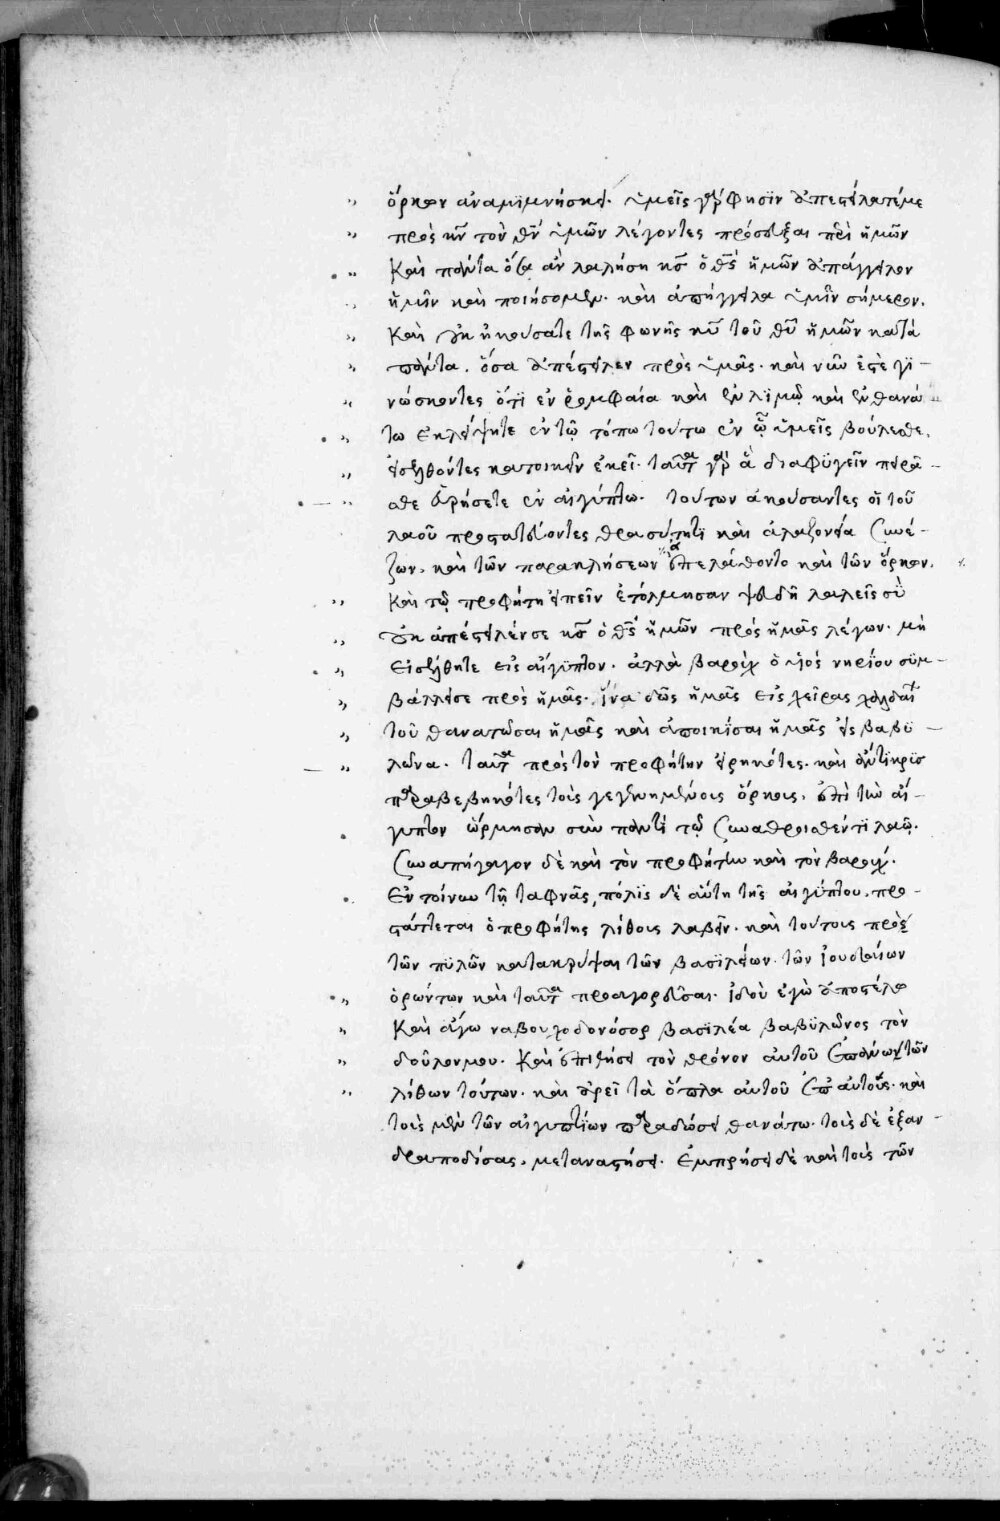 ὅρκον ἀναμιμνήσκει. ὑμεῖς γὰρ φησὶν ἀπεστείλατέ με
πρὸς κν τὸν θν ὑμῶν λέγοντες πρόσευξαι περὶ ἡμῶν
καὶ πάντα ὅσα ἂν λαλήση κς ὁ θς ἡμῶν ἀπάγγειλον
ἡμῖν καὶ ποιήσομεν. καὶ ἀπήγγειλα ὑμῖν σήμερον.
καὶ οὐκ ἠκούσατε τῆς φωνῆς κυ τοῦ θυ ἡμῶν κατὰ
πάντα. ὅσα ἀπέστειλεν πρὸς ὑμᾶς. καὶ νῦν ἔστε γι-
νώσκοντες ὅτι ἐν ῥομφαία καὶ ἐν λιμῷ καὶ ἐν θανά
τω ἐκλείψητε ἐν τῷ τόπω τούτω ἐν ᾧ ὑμεῖς βούλεσθε.
εἰσελθόντες κατοικεῖν ἐκεῖ. ταῦτα γὰρ ἃ διαφυγεῖν πειρᾶ-
σθε εὑρήσετε ἐν αἰγύπτω. τούτων ἀκούσαντες οἱ τοῦ
λαοῦ προστατεύοντες θρασύτητι καὶ ἀλαζονεία συνέ-
ζων. καὶ τῶν παρακλήσεων ἐπελάθοντο καὶ τῶν ὅρκων.
καὶ τῷ προφήτη εἰπεῖν ἐτόλμησαν ψευδῆ λαλεῖς σὺ
οὐκ ἀπέστειλέν σε κς ὁ θς ἡμῶν πρὸς ἡμᾶς λέγων. μὴ
εἰσέλθητε εἰς αἴγυπτον. ἀλλὰ βαροὺχ ὁ υἱὸς νηρίου συμ-
βάλλει σε πρὸς ἡμᾶς. ἵνα δῶς ἡμᾶς εἰς χεῖρας χαλδαί
τοῦ θανατῶσαι ἡμᾶς καὶ ἀποικίσαι ἡμᾶς εἰς βαβυ-
λῶνα. ταῦτα πρὸς τὸν προφήτην εἰρηκότες. καὶ ἄντικρυς
παραβεβηκότες τοὺς γεγενημένους ὅρκους. ἐπὶ τὴν αἴ-
γυπτον ὥρμησαν σὺν παντὶ τῷ συναθροισθέντι λαῷ.
συναπήγαγον δὲ καὶ τὸν προφήτην καὶ τὸν βαρούχ.
ἐν τοίνυν τῆ ταφνὰς, πόλις δὲ αὕτη τῆς αἰγύπτου. προ-
στάττεται ὁ προφήτης λίθους λαβεῖν. καὶ τούτους πρὸς
τῶν πυλῶν κατακρύψαι τῶν βασιλείων. τῶν ἰουδαίων
ὁρώντων καὶ ταῦτα προαγορεῦσαι. ἰδοὺ ἐγὼ ἀποστέλλω
καὶ ἄγω ναβουχοδονόσορ βασιλέα βαβυλῶνος τὸν
δοῦλον μου. καὶ ἐπιθήσει τὸν θρόνον αὐτοῦ ἐπάνω τῶν
λίθων τούτων. καὶ ἀρεῖ τὰ ὅπλα αὐτοῦ ἐπ αὐτοὺς. καὶ
τοὺς μὲν τῶν αἰγυπτίων παραδώσει θανάτω. τοὺς δὲ ἐξαν-
δραποδίσας. μεταναστήσει. ἐμπρήσει δὲ καὶ τοὺς τῶν